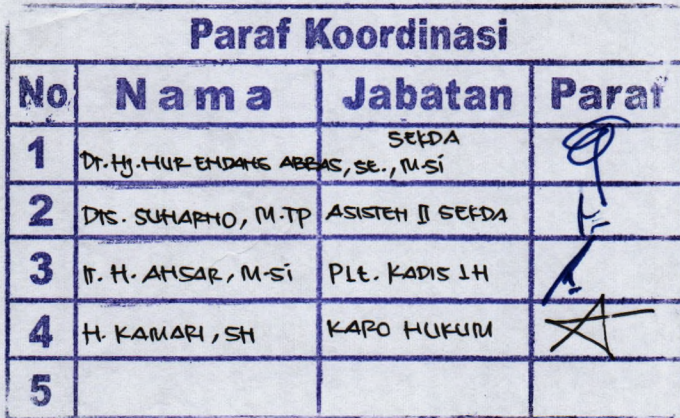 Paraf Koordinasi
No Nama Jabatan Paraf
1 Dr. Hj. NUR ENDANG ABBAS, SE., M.Si SEKDA
2 Drs. SUHARNO, M.TP ASISTEN II SEKDA
3 Ir. H. ANSAR, M.Si PLt. KADIS LH
4 H. KAMARI, SH KARO HUKUM
5